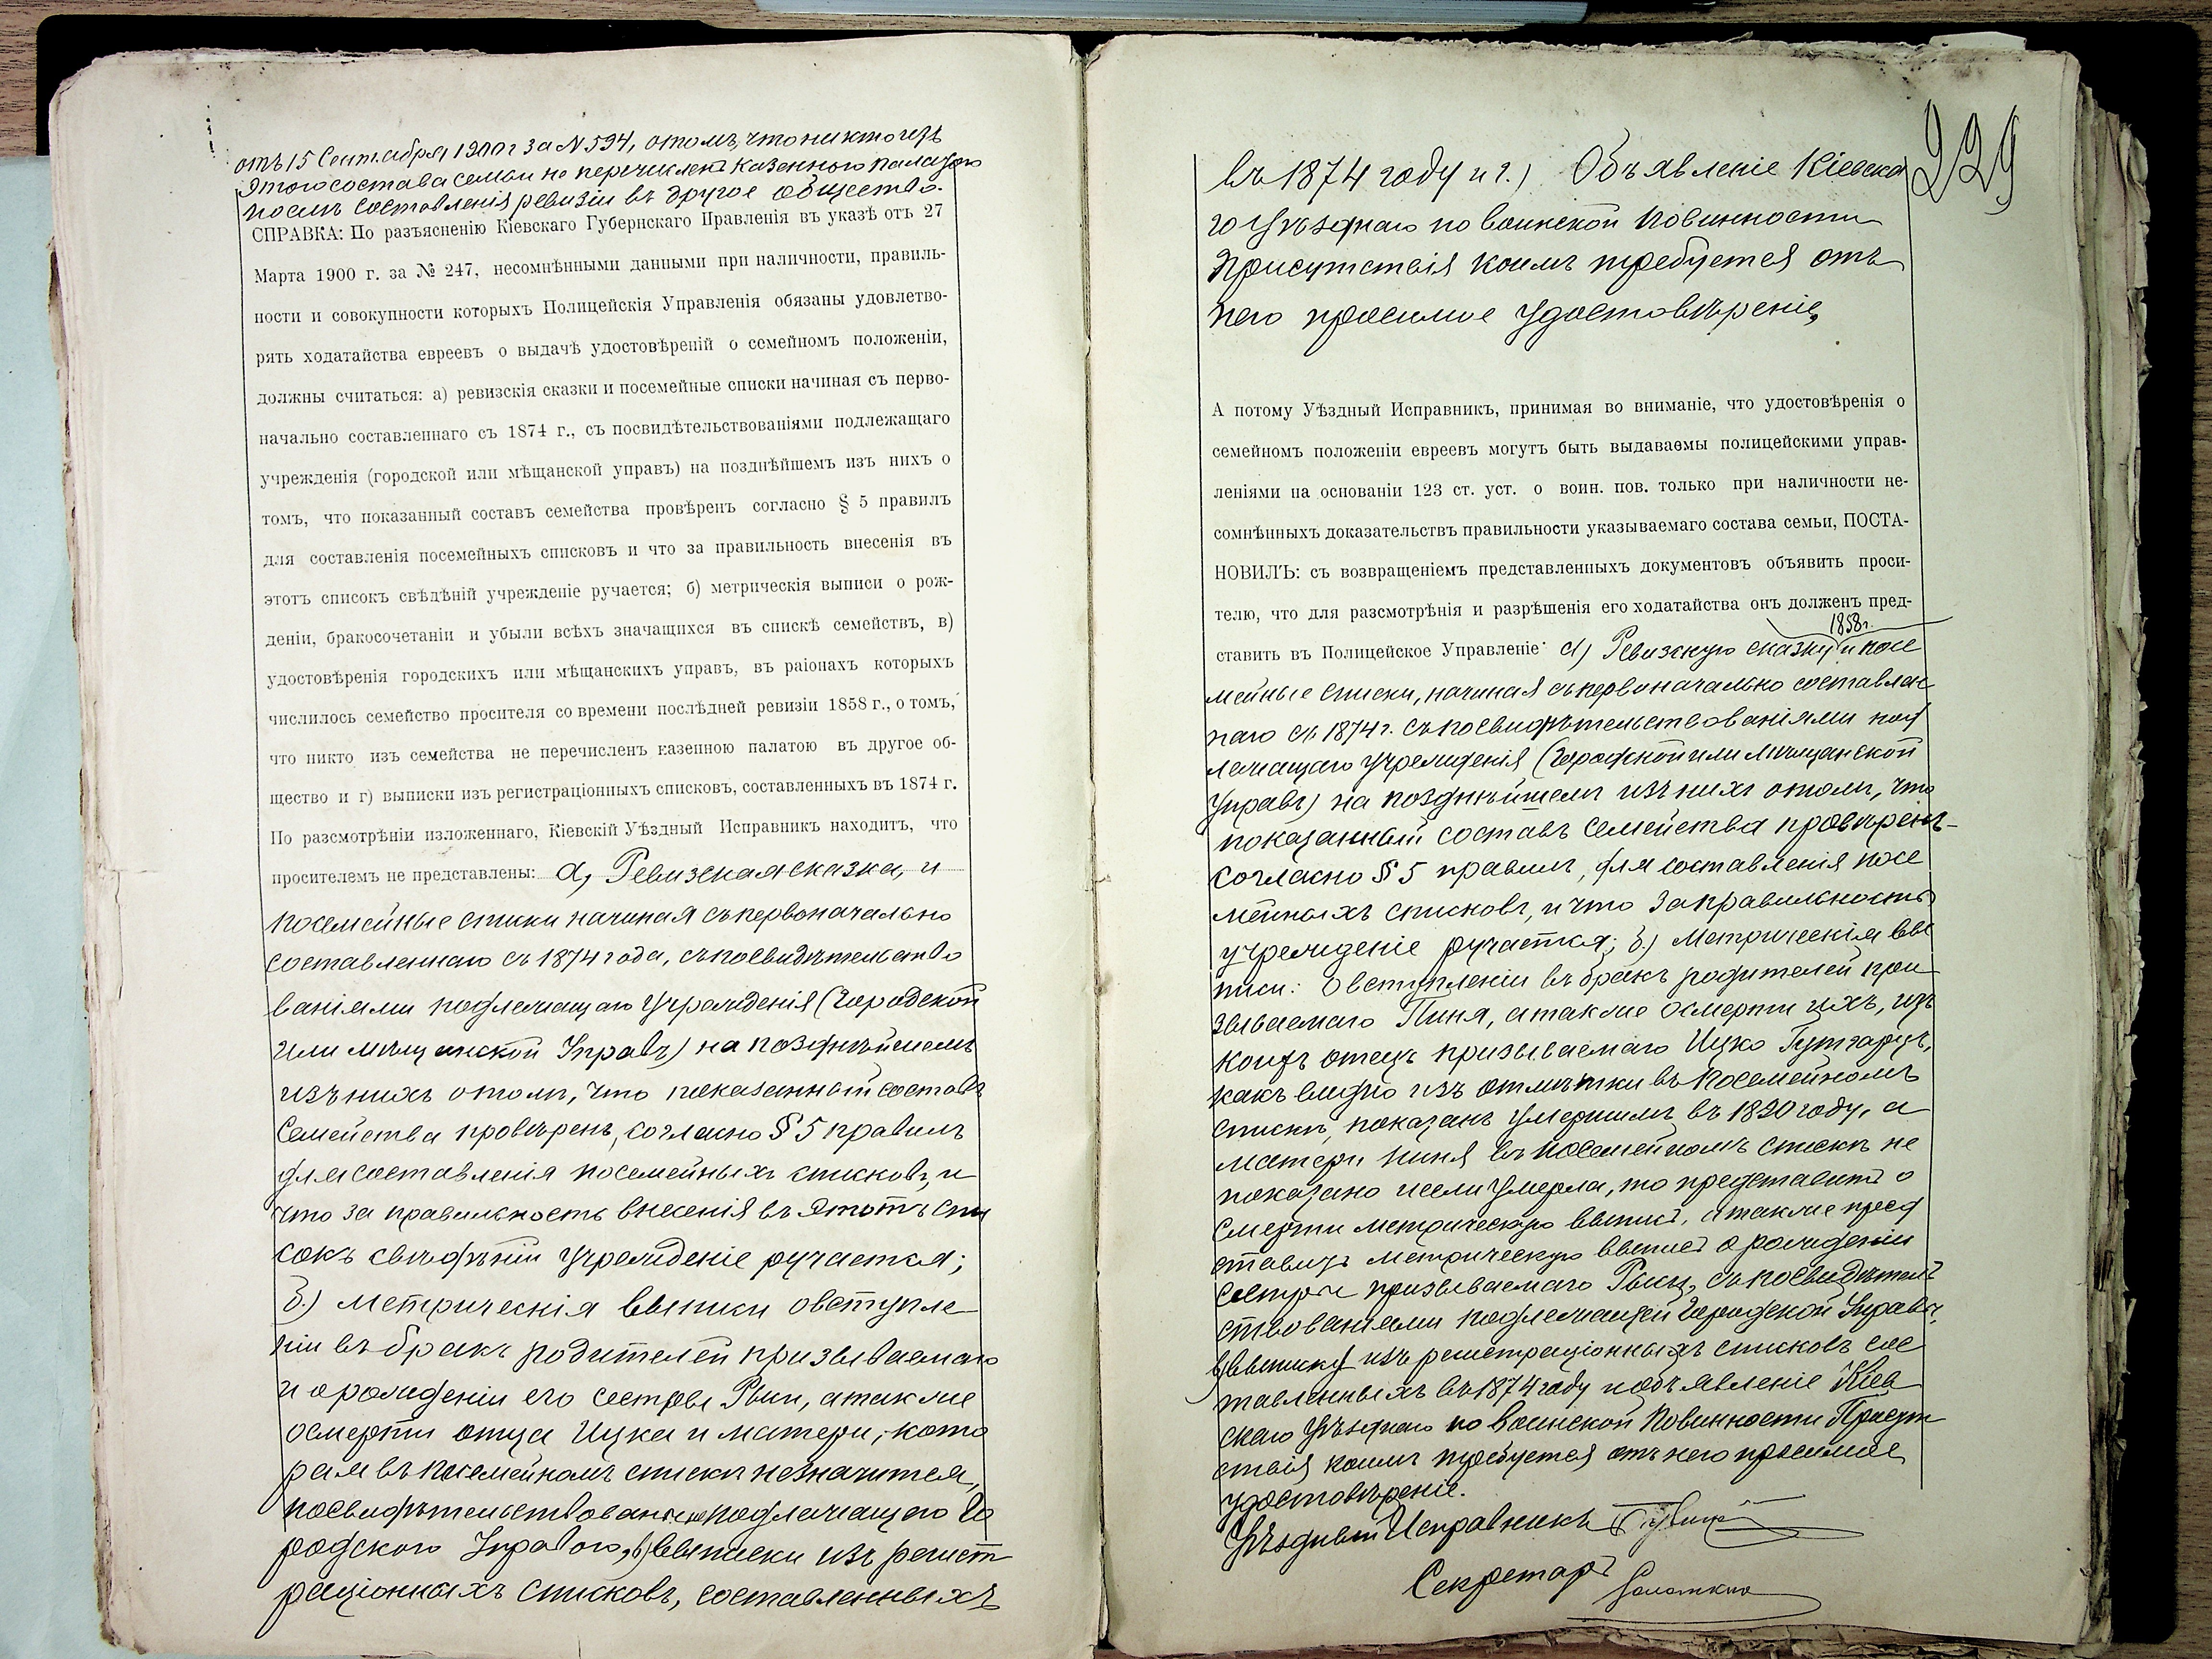 отъ 15 Сентября 1900 г за N 594, о томъ, что никто изъ
этого состава семьи не перечисленъ казенною палатою
послѣ составленія ревизіи въ другое общество.
СПРАВКА: По разъясненію Кіевскаго Губернскаго Правленія въ указѣ отъ 27
Марта 1900 г. за № 247, несомнѣнными данными при наличности, правиль-
ности и совокупности которыхъ Полицейскія Управленія обязаны удовлетво-
рять ходатайства евреевъ о выдачѣ удостовѣреній о семейномъ положеніи,
должны считаться: а) ревизскія сказки и посемейные списки начиная съ перво-
начально составленнаго съ 1874 г., съ посвидѣтельствованіями подлежащаго
учрежденія (городской или мѣщанской управъ) на позднѣйшемъ изъ нихъ о
томъ, что показанный составъ семейства провѣренъ согласно § 5 правилъ
для составленія посемейныхъ списковъ и что за правильность внесенія въ
этотъ списокъ свѣдѣній учрежденіе ручается; б) метрическія выписи о рож-
деніи, бракосочетаніи и убыли всѣхъ значащихся въ спискѣ семействъ, в)
удостовѣренія городскихъ или мѣщанскихъ управъ, въ раіонахъ которыхъ
числилось семейство просителя со времени послѣдней ревизіи 1858 г., о томъ,
что никто изъ семейства не перечисленъ казенною палатою въ другое об-
щество и г) выписки изъ регистраціонныхъ списковъ, составленныхъ въ 1874 г.
По разсмотрѣніи изложеннаго, Кіевскій Уѣздный Исправникъ находитъ, что
просителемъ не представлены: а, Ревизская сказка, и
посемейные списки начиная съ первоначально
составленнаго съ 1874 года, съ посвидѣтельство
ваніями подлежащаго Учрежденія (Городской
или мѣщанской Управъ) на позднѣйшемъ
изъ нихъ о томъ, что показанный составъ
Семейства провѣренъ, согласно § 5 правилъ
для составленія посемейныхъ списковъ, и
что за правильность внесенія въ этотъ спи
сокъ свѣдѣній Учрежденіе ручается;
б.) метрическія выписи о вступле
ніи въ бракъ родителей призываемаго
и о рожденіи его сестры Рыси, а также
о смерти отца Ицка и матери, кото
рая въ посемейномъ списке не значится,
посвидѣтельствованіемъ подлежащею Го
родскою Управою, в) выписки изъ регист
раціонныхъ списковъ, составленныхъ
229
въ 1874 году и г.) Объявленіе Кіевска
го Уѣзднаго по воинской повинности
Присутствія коимъ требуется отъ
него просимое удостовѣреніе,
А потому Уѣздный Исправникъ, принимая во вниманіе, что удостовѣренія о
семейномъ положеніи евреевъ могутъ быть выдаваемы полицейскими управ-
леніями на основаніи 123 ст. уст. о воин. пов. только при наличности не-
сомнѣнныхъ доказательствъ правильности указываемаго состава семьи, ПОСТА-
НОВИЛЪ: съ возвращеніемъ представленныхъ документовъ объявить проси-
телю, что для разсмотрѣнія и разрѣшенія его ходатайства онъ долженъ пред-
1858 г.
ставить въ Полицейское Управленіе: а) Ревизскую сказку и посе
мейные списки, начиная съ первоначально составлен
наго съ 1874 г. съ посвидѣтельствованіями под
лежащаго Учрежденія (Городской или Мѣщанской
Управъ) на позднѣйшемъ изъ нихъ о томъ, что
показанный составъ Семейства провѣренъ
согласно § 5 правилъ, для составленія посе
мейныхъ списковъ, и что за правильность
учрежденіе ручается; б.) Метрическія вы
писи: о вступленіи въ бракъ родителей при
зываемаго Пиня, а также о смерти ихъ, изъ
коихъ отецъ призываемаго Ицко Гутгарцъ,
какъ видно изъ отмѣтки въ посемейномъ
спискѣ, показанъ умершимъ въ 1890 году, а
матери Пиня въ посемейномъ спискѣ не
показано и если умерла, то представить о
смерти метрическую выпись, а также пред
ставить метрическую выпись о рожденіи
сестры призываемаго Рыси, съ посвидѣтель
ствованіями подлежащей Городской Управы,
в) выписку изъ регистраціонныхъ списковъ сос
тавленныхъ въ 1874 году и объявленіе Кіев
скаго Уѣзднаго по Воинской Повинности Присут
ствія коимъ требуется отъ него просимое
удостовѣреніе.
Уѣздный Исправникъ
Секретарь